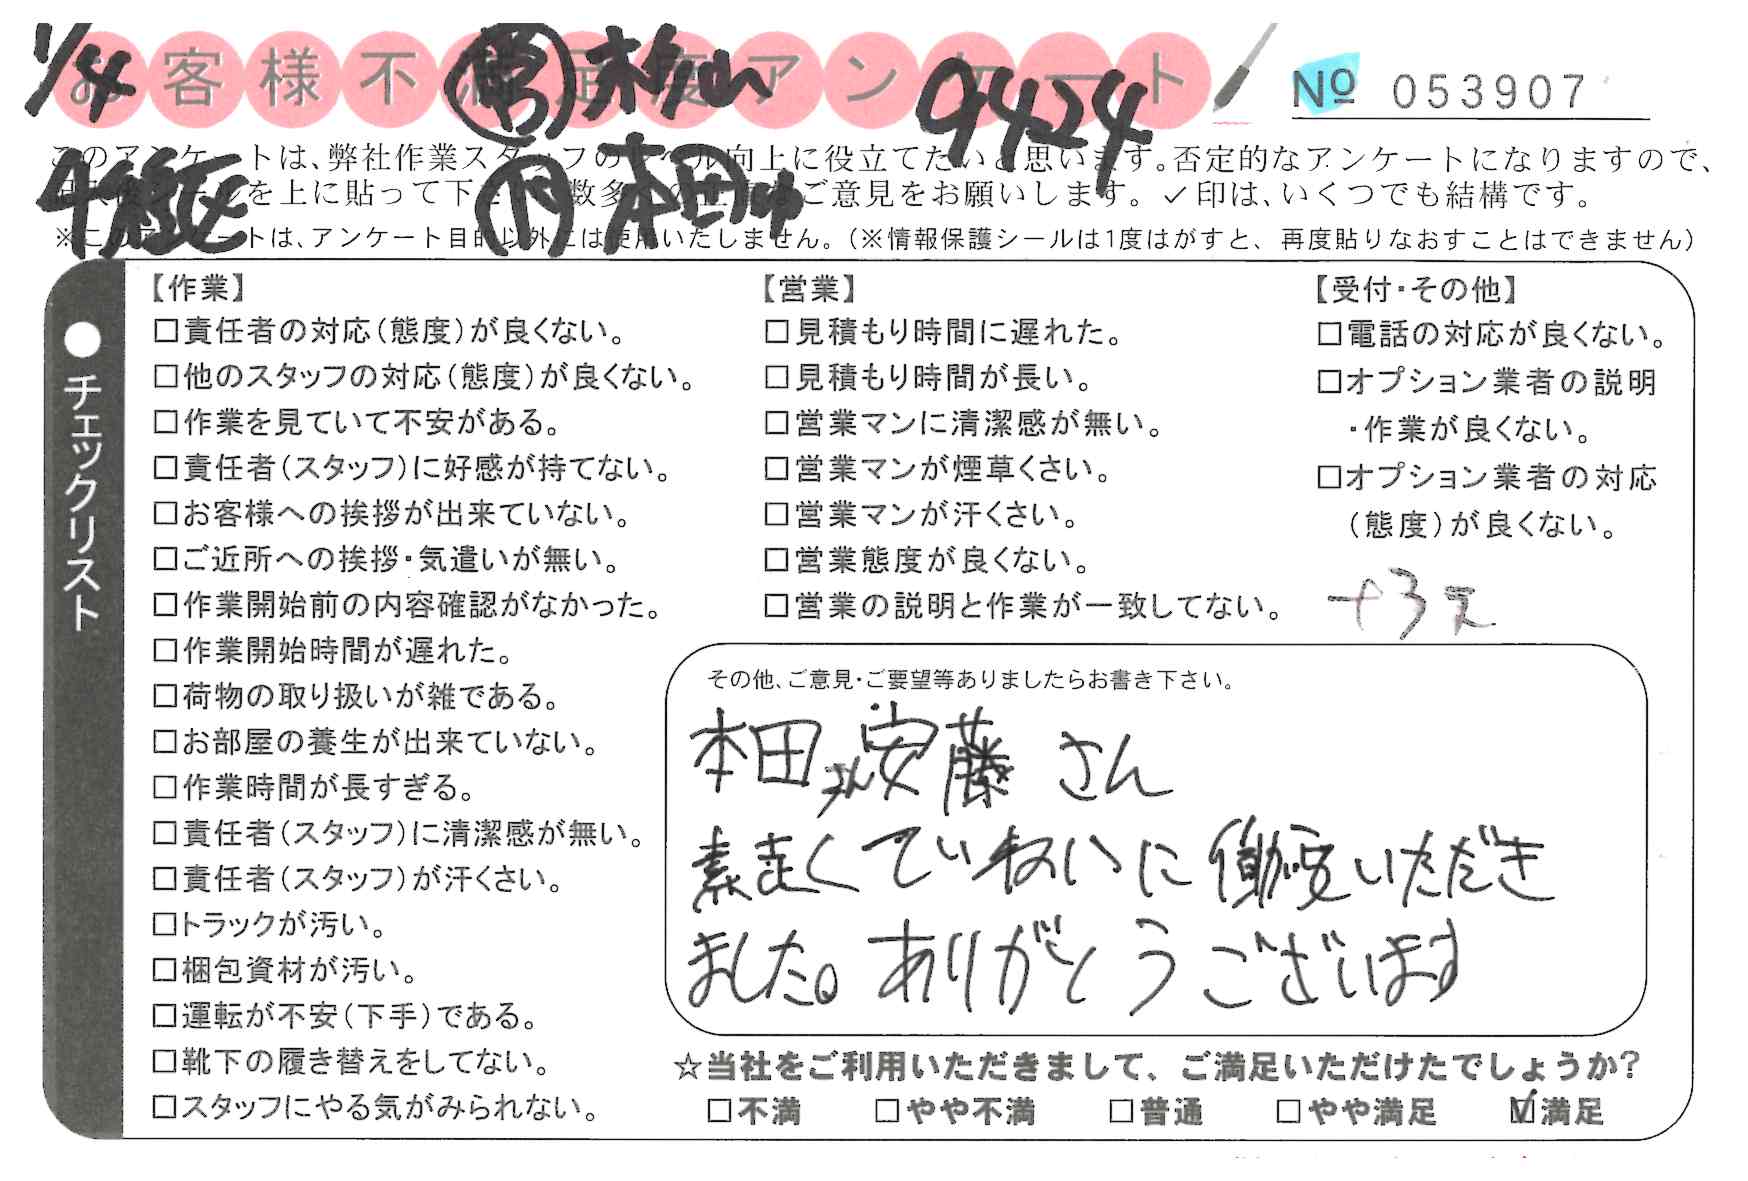 1/4 お客様不満足度アンケート 9424 № 053907
このアンケートは、弊社作業スタッフのレベル向上に役立てたいと思います。否定的なアンケートになりますので、
を上に貼って下さ 数多 ご意見をお願いします。✓印は、いくつでも結構です。
本田
※このアンケートは、アンケート目的以外には使用いたしません。(※情報保護シールは1度はがすと、再度貼りなおすことはできません)
●チェックリスト
【作業】
□責任者の対応(態度)が良くない。
□他のスタッフの対応(態度)が良くない。
□作業を見ていて不安がある。
□責任者(スタッフ)に好感が持てない。
□お客様への挨拶が出来ていない。
□ご近所への挨拶・気遣いが無い。
□作業開始前の内容確認がなかった。
□作業開始時間が遅れた。
□荷物の取り扱いが雑である。
□お部屋の養生が出来ていない。
□作業時間が長すぎる。
□責任者(スタッフ)に清潔感が無い。
□責任者(スタッフ)が汗くさい。
□トラックが汚い。
□梱包資材が汚い。
□運転が不安(下手)である。
□靴下の履き替えをしてない。
□スタッフにやる気がみられない。
【営業】
□見積もり時間に遅れた。
□見積もり時間が長い。
□営業マンに清潔感が無い。
□営業マンが煙草くさい。
□営業マンが汗くさい。
□営業態度が良くない。
□営業の説明と作業が一致してない。
【受付・その他】
□電話の対応が良くない。
□オプション業者の説明
・作業が良くない。
□オプション業者の対応
(態度)が良くない。
その他、ご意見・ご要望等ありましたらお書き下さい。
本田さん安藤さん
素走くていねいに働いていただき
ました。ありがとうございます
☆当社をご利用いただきまして、ご満足いただけたでしょうか?
□不満 □やや不満 □普通 □やや満足 ☑満足